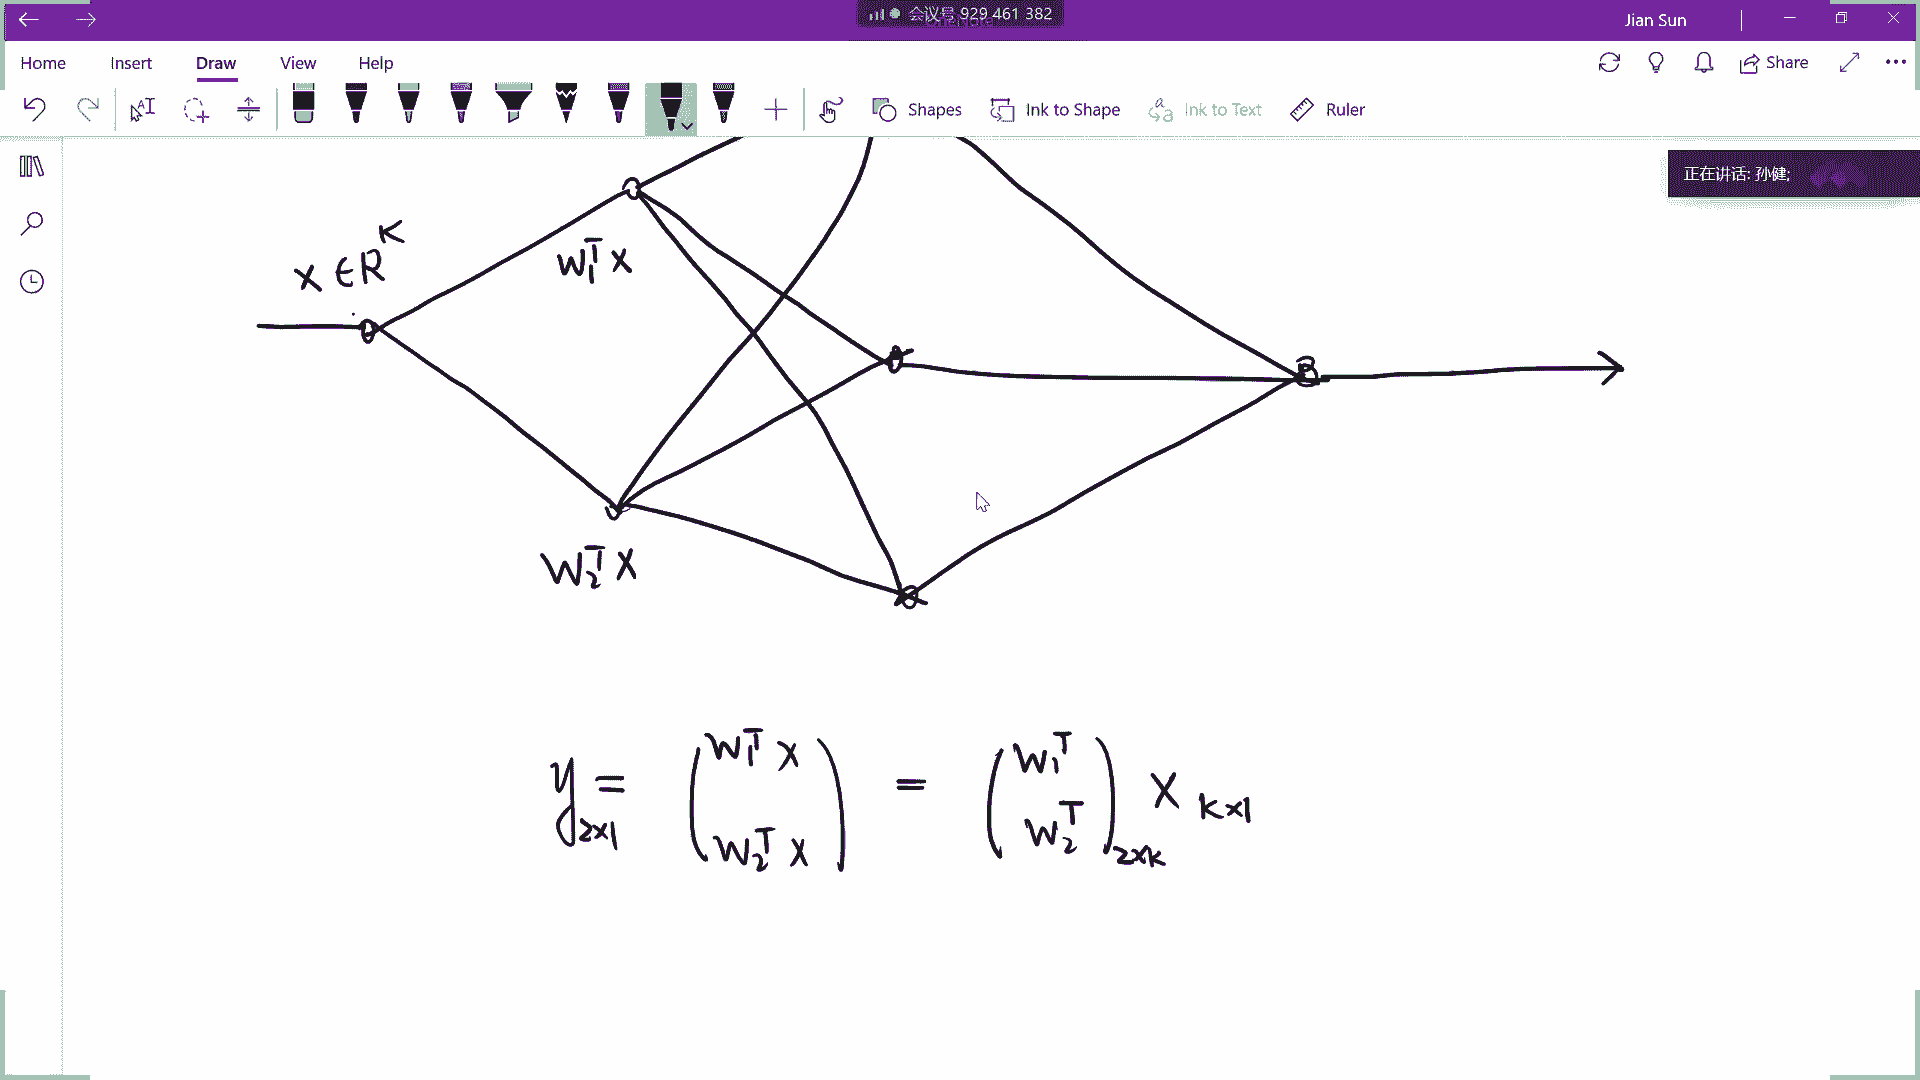 会议号 929 461 382
Jian Sun
Home Insert Draw View Help
Share
Shapes Ink to Shape Ink to Text Ruler
正在讲话: 孙健;
x ∈ R^K
W₁ᵀ x
W₂ᵀ x
y₂ₓ₁ = (W₁ᵀ x W₂ᵀ x) = (W₁ᵀ W₂ᵀ)₂ₓₖ x ₖₓ₁